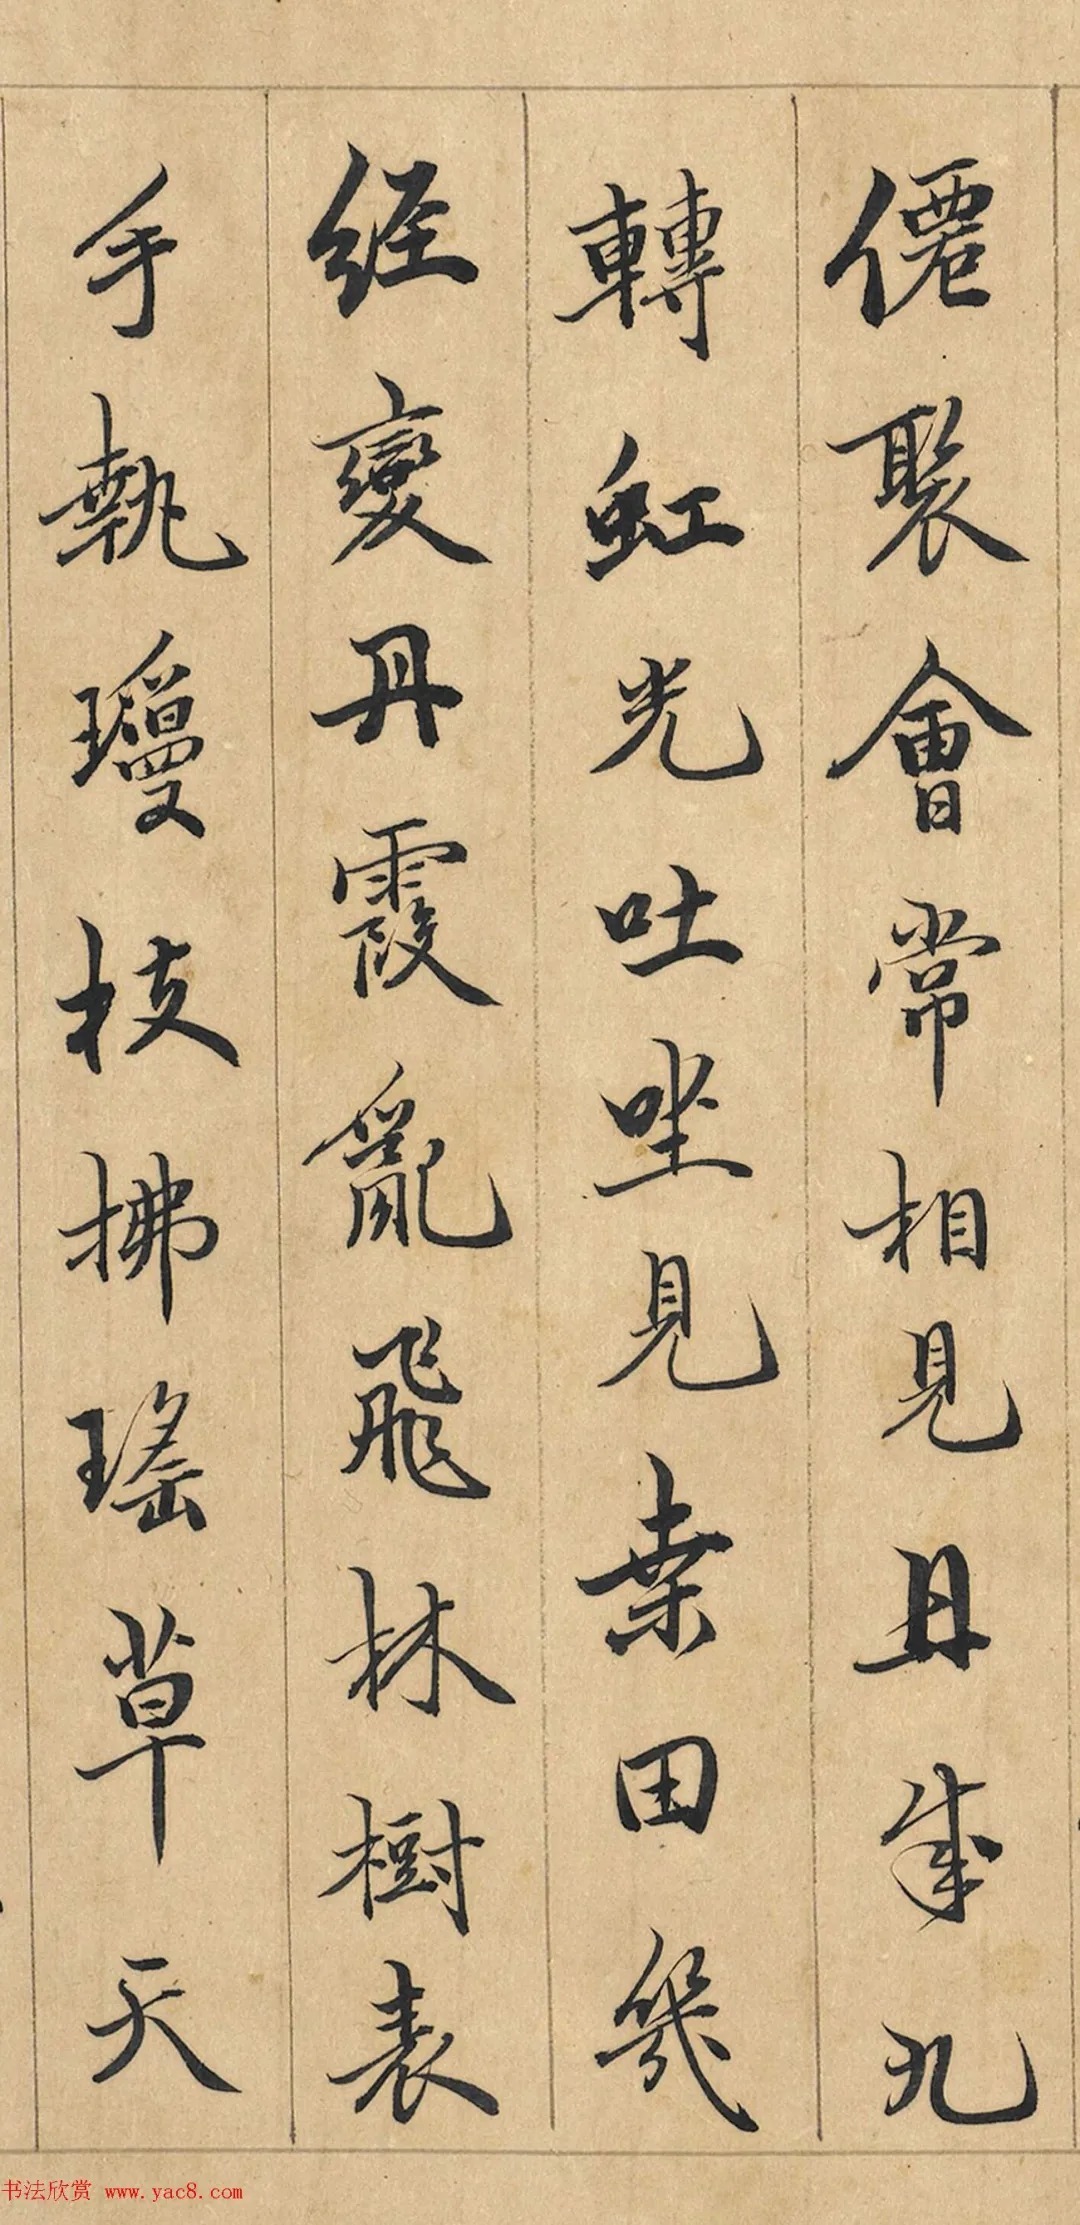 僊聚會常相見丹成九
轉虹光吐坐見桒田幾
经變丹霞亂飛林樹表
手執瓊枝拂瑤草天
书法欣赏 www.yac8.com